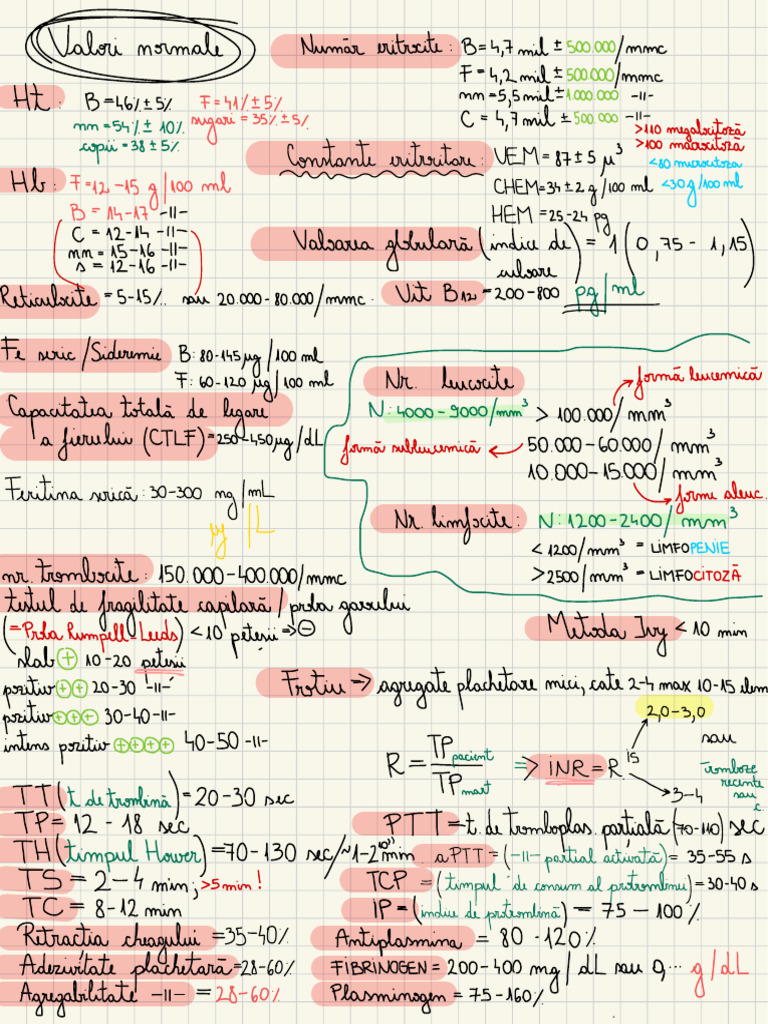 Valori normale
Ht: B=46%±5% F=41%±5%
nn=54%±10% sugari=35%±5%
copii=38±5%
Hb: F=12-15 g/100 ml
B=14-17 -11-
C=12-14 -11-
nn=15-16 -11-
s=12-16 -11-
Reticulocite=5-15‰ sau 20.000-80.000/mmc.
Număr eritrocite: B=4,7 mil ± 500.000/mmc
F=4,2 mil ± 500.000/mmc
nn=5,5 mil ± 1.000.000 -11-
C=4,7 mil ± 500.000 -11-
>110 megalocitoză
>100 macrocitoză
<80 microcitoza
<30 g/100 ml
Constante eritrocitare: VEM=87±5 μ³
CHEM=34±2 g/100 ml
HEM=25-24 pg
Valoarea globulară (indice de culoare)=1 (0,75-1,15)
Vit B12=200-800 pg/ml
Fe seric/Sideremie B: 80-145 μg/100 ml
F: 60-120 μg/100 ml
Capacitatea totală de legare
a fierului (CTLF)=250-450 μg/dL
Feritina serică: 30-300 ng/mL
μg/L
Nr. leucocite
N: 4000-9000/mm³ >100.000/mm³ formă leucemică
formă subleucemică 50.000-60.000/mm³
10.000-15.000/mm³
forme aleuc.
Nr. limfocite: N: 1200-2400/mm³
<1200/mm³ = LIMFOPENIE
>2500/mm³ = LIMFOCITOZĂ
nr. trombocite: 150.000-400.000/mmc
testul de fragilitate capilară/proba garoului
(=Proba Rumpell-Leeds) <10 peteșii => ⊖
slab + 10-20 peteșii
pozitiv ++ 20-30 -11-
pozitiv +++ 30-40 -11-
intens pozitiv ++++ 40-50 -11-
Metoda Ivy <10 min
Frotiu => agregate plachetare mici, cate 2-4 max 10-15 elem
R = TP pacient / TP mart => INR=R^IS
2,0-3,0
sau
3-4
Tromboze
recente
sau
TT (t. de trombină)=20-30 sec
TP=12-18 sec
TH (timpul Hower)=70-130 sec/~1-2 min
TS=2-4 min; >5 min!
TC=8-12 min
Retractia cheagului=35-40%
Adezivitate plachetară=28-60%
Agregabilitate -11- =28-60%
PTT=t. de tromboplas. parțială (70-110) sec
aPTT=(-11- partial activată)=35-55 s
TCP=(timpul de consum al protrombinei)=30-40 s
IP=(indice de protrombină)=75-100%
Antiplasmina=80-120%
FIBRINOGEN=200-400 mg/dL sau 0,... g/dL
Plasminogen=75-160%